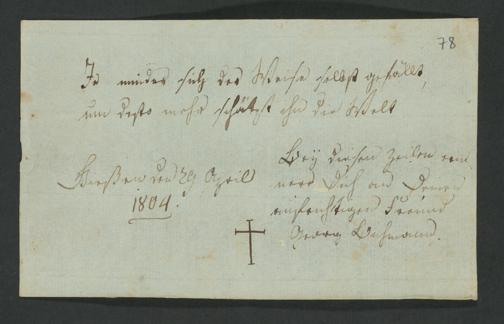 78
Je minder sich der Weise selbst gefällt,
um desto mehr schätzt ihn die Welt
den 29 April
1804.
Bey diesen Zeilen erin
nere Dich an Deinen
aufrichtigen Freund
Georg